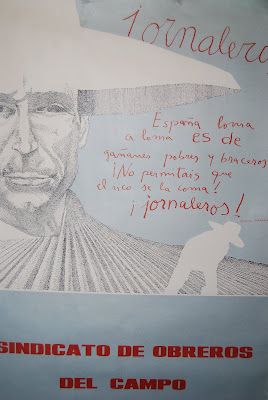 jornalero
España loma
a loma es de
gañanes pobres y braceros
¡No permitáis que
el rico se la coma!
¡jornaleros!
SINDICATO DE OBREROS
DEL CAMPO